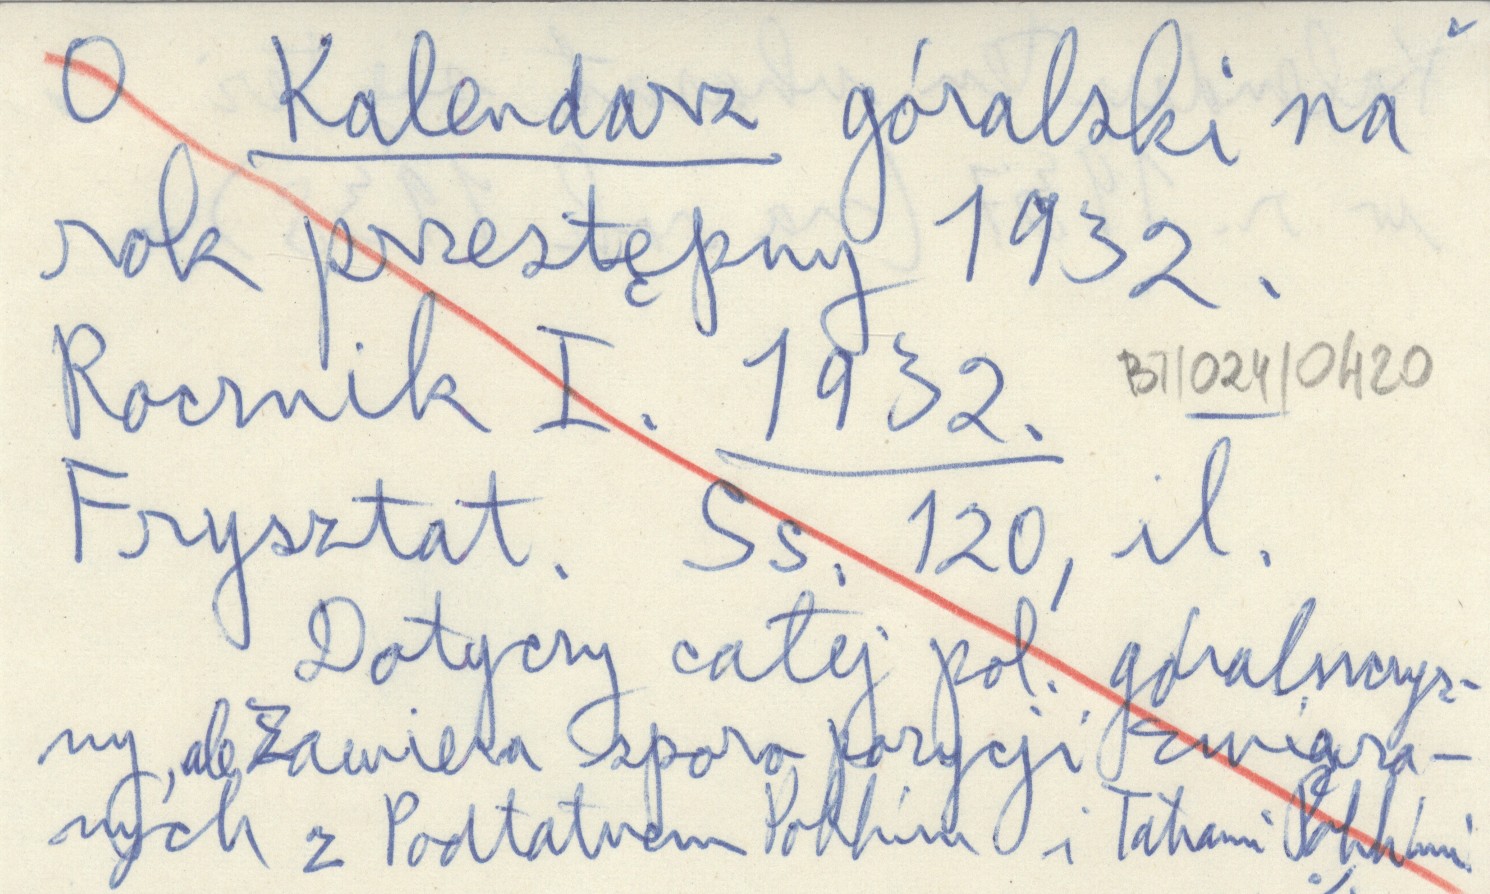 O Kalendarz góralski na
rok przestępny 1932.
Rocznik I. 1932.
BT/024/0420
Frysztat. Ss. 120, il.
Dotyczy całej pol. góralszczyz-
ny, ale zawiera sporo pozycji związa-
nych z Podtatrzem Polskim i Tatrami Polskimi